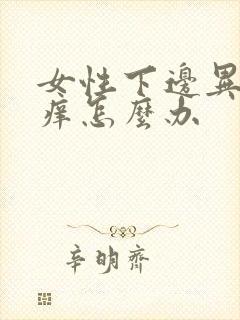 女性下邊異
癢怎麼办
辛明齊